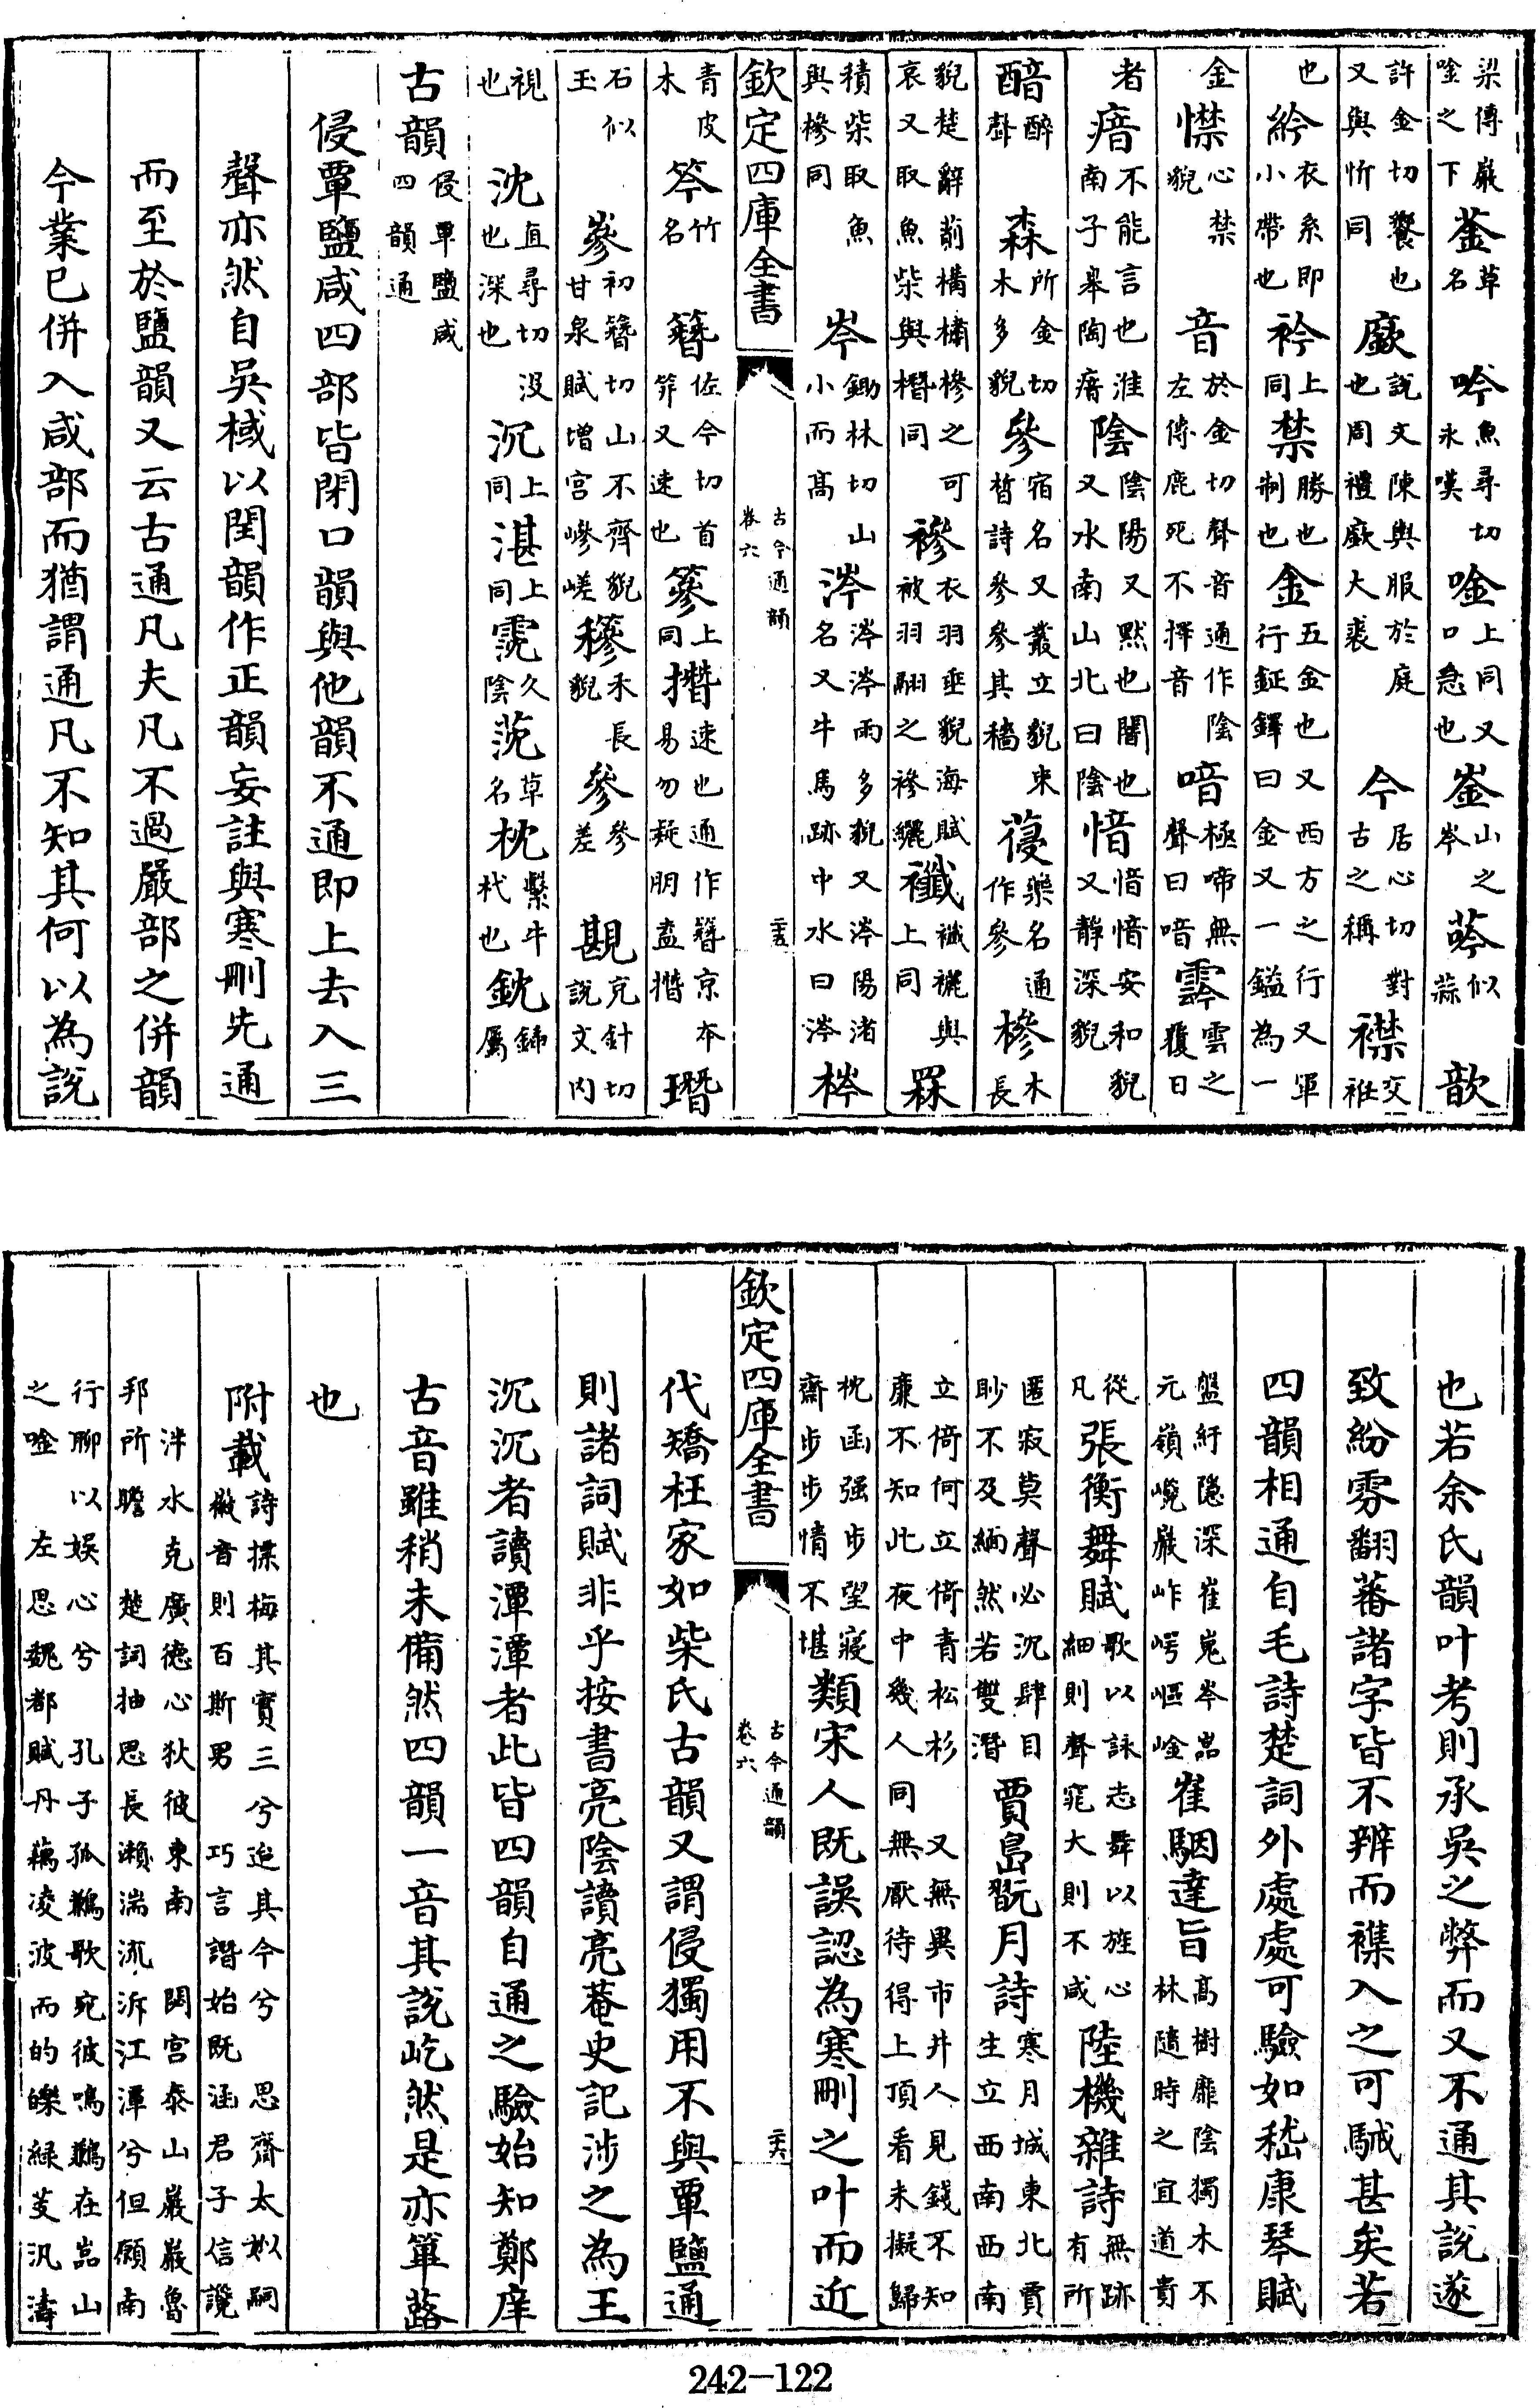 梁傳巖唫之下荶草名吟魚尋切永嘆唫上同又口急也崟山之岑䔷似蒜歆
許金切饗也又與忻同廞說文陳輿服於庭也周禮廞大裘今居心切對古之稱襟交衽
也紟衣系即小帶也衿上同禁勝也也制也金五金也又西方之行又軍行鉦鐸曰金又一鎰為一
金㦗心禁貌音於金切聲音通作陰左傳鹿死不擇音喑極啼無聲曰喑霠雲之覆日
者瘖不能言也淮南子臯陶瘖陰陰陽又默也闇也又水南山北曰陰愔愔愔安和貌又靜深貌
䤃醉聲森所金切木多貌參宿名又叢立貌束晳詩參參其穡葠藥名通作參槮木長
貌楚辭萷櫹櫹槮之可哀又取魚柴與橬同襂衣羽垂貌海賦被羽翮之襂纚襳襳襹與上同罧
積柴取魚與槮同岑鋤林切山小而高涔涔涔雨多貌又涔陽渚名又牛馬跡中水曰涔梣
欽定四庫全書 古今通韻 卷六 三五
青皮木笒竹名簪佐今切首筓又速也篸上同撍速也通作簪京本易勿疑朋盍撍瑨
石似玉嵾初簪切山不齊貌甘泉賦增宮嵾嵯穇禾長貌參參差戡克針切說文內
視也沈直尋切没也深也沉上同湛上同霃久陰莐草名枕繫牛杙也鈂鍤屬
古韻侵覃鹽咸四韻通
侵覃鹽咸四部皆閉口韻與他韻不通即上去入三
聲亦然自吳棫以閏韻作正韻妄註與寒刪先通
而至於鹽韻又云古通凡夫凡不過嚴部之併韻
今業已併入咸部而猶謂通凡不知其何以為說
也若余氏韻叶考則承吳之弊而又不通其說遂
致紛雰翻蕃諸字皆不辨而襍入之可駴甚矣若
四韻相通自毛詩楚詞外處處可驗如嵇康琴賦
盤紆隱深崔嵬岑嵒元嶺巉巖岞崿嶇崟崔駰達旨高樹靡陰獨木不林隨時之宜道貴
從凡張衡舞賦歌以詠志舞以旌心細則聲窕大則不咸陸機雜詩無跡有所
匿寂莫聲必沉肆目眇不及緬然若雙潛賈島翫月詩寒月城東北賈生立西南西南
立倚何立倚青松杉又無異市井人見錢不知廉不知此夜中幾人同無厭待得上頂看未擬歸
枕函强步望寢齋步步情不堪類宋人既誤認為寒刪之叶而近
欽定四庫全書 古今通韻 卷六 三六
代矯枉家如柴氏古韻又謂侵獨用不與覃鹽通
則諸詞賦非乎按書亮陰讀亮菴史記涉之為王
沉沉者讀潭潭者此皆四韻自通之驗始知鄭庠
古音雖稍未備然四韻一音其說屹然是亦篳蕗
也
附載詩摽梅其實三兮迨其今兮 思齊太姒嗣徽音則百斯男 巧言譖始既涵君子信讒
泮水克廣德心狄彼東南 閟宮泰山巖巖魯邦所瞻 楚詞抽思長瀨湍流泝江潭兮但願南
行聊以娛心兮 孔子孤鷾歌宛彼鳴鷾在嵒山之唫 左思魏都賦丹藕凌波而的皪綠芰汎濤
242-122